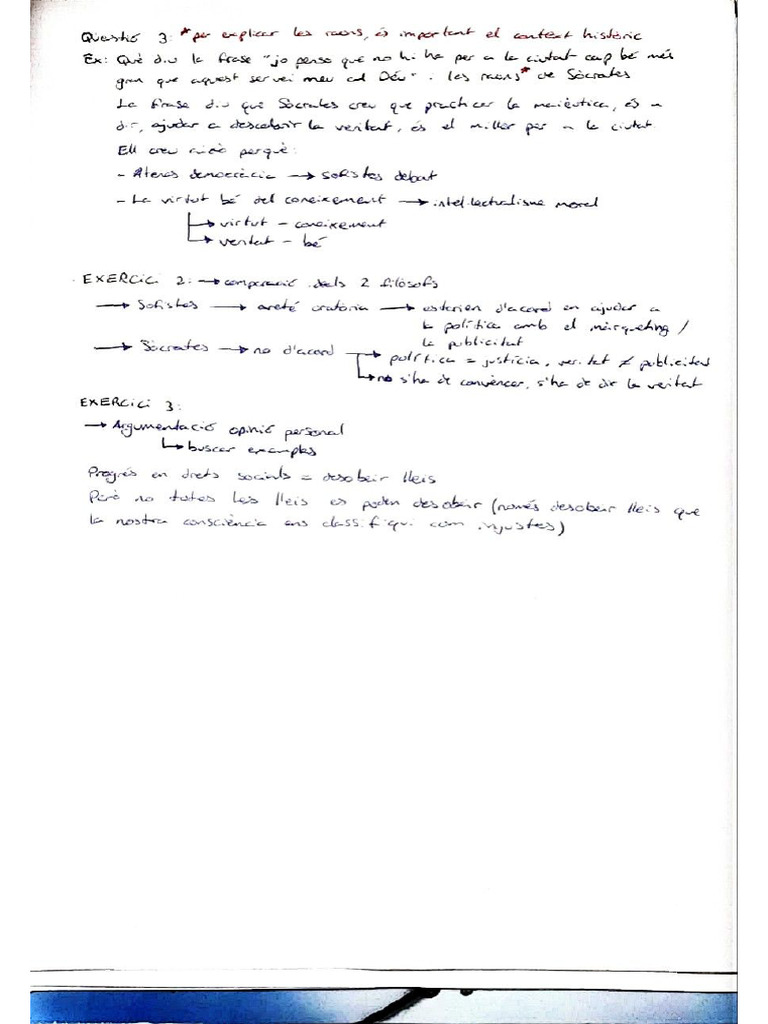 Qüestió 3: *per explicar les raons, és important el context històric
Ex: Què diu la frase "jo penso que no hi ha per a la ciutat cap bé més
gran que aquest servei meu al Déu" i les raons* de Sòcrates
La frase diu què Sòcrates creu que practicar la maièutica, és a
dir, ajudar a descobrir la veritat, és el millor per a la ciutat.
Ell creu això perquè:
- Atenes democràcia → sofistes debat
- La virtut bé del coneixement → intel·lectualisme moral
→ virtut - coneixement
→ veritat - bé
EXERCICI 2: → comparació dels 2 filòsofs
→ Sofistes → areté oratòria → estarien d'acord en ajudar a
la política amb el màrqueting /
la publicitat
→ Sòcrates → no d'acord → política = justícia, veritat ≠ publicitat
→ no s'ha de convèncer, s'ha de dir la veritat
EXERCICI 3:
→ Argumentació opinió personal
→ buscar exemples
Progrés en drets socials = desobeir lleis
Però no totes les lleis es poden desobeir (només desobeir lleis que
la nostra consciència ens classifiqui com injustes)